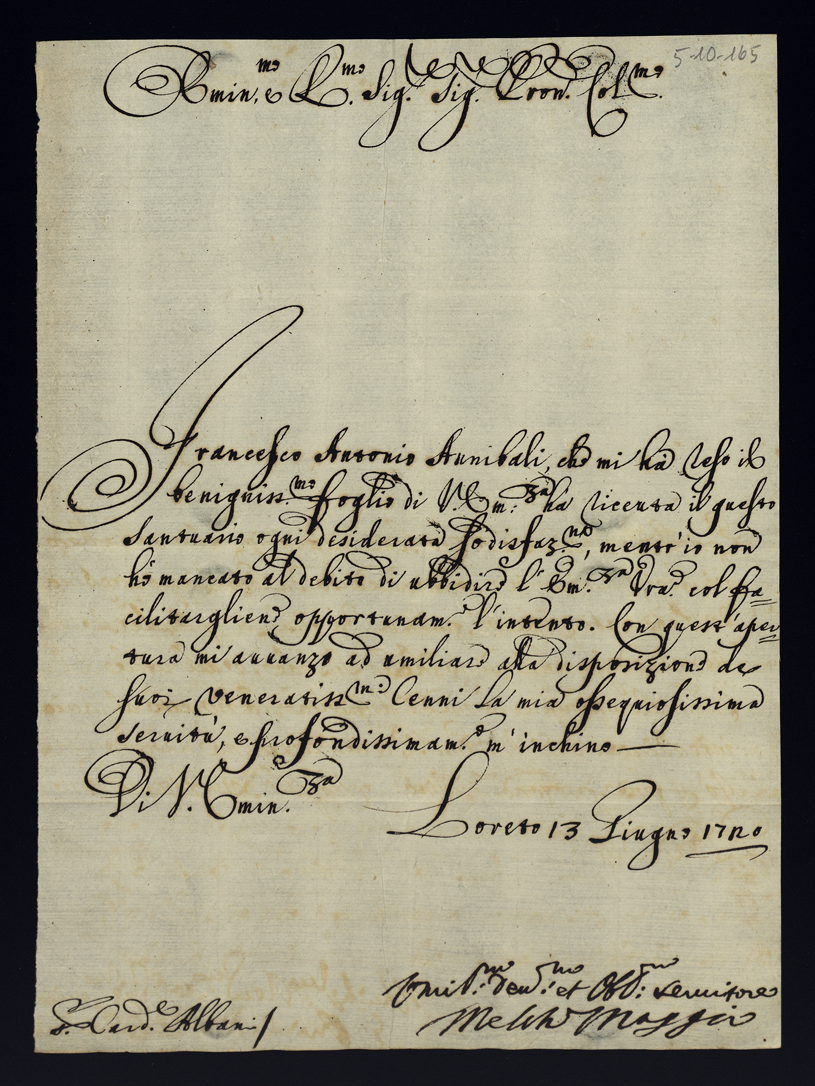 5-10-165
Emin.mo e R.mo Sig. Sig. Pron. Col.mo
Francesco Antonio Annibali, che mi hà reso il
benigniss.mo foglio di V. Em.za hà riceuta il questo
Santuario ogni desiderata sodisfaz.ne, mentr'io non
hò mancato al debito di ubbidire l'Em.za Vra. col fa=
cilitargliene opportunam.e l'intento. Con quest'aper=
tura mi auuanzo ad umiliare alla disposizione de
suoi veneratiss.mi Cenni la mia ossequiosissima
seruitù, e profondissimam.e m'inchino
Di V. Emin.za
Loreto 13 Giugno 1720
Umil.mo deu.mo et Obl.mo seruitore
S.r Card.e Albani
Melch. Maggio